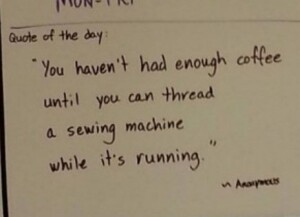 MON-FRI
Quote of the day:
"You haven't had enough coffee
until you can thread
a sewing machine
while it's running."
~ Anonymous